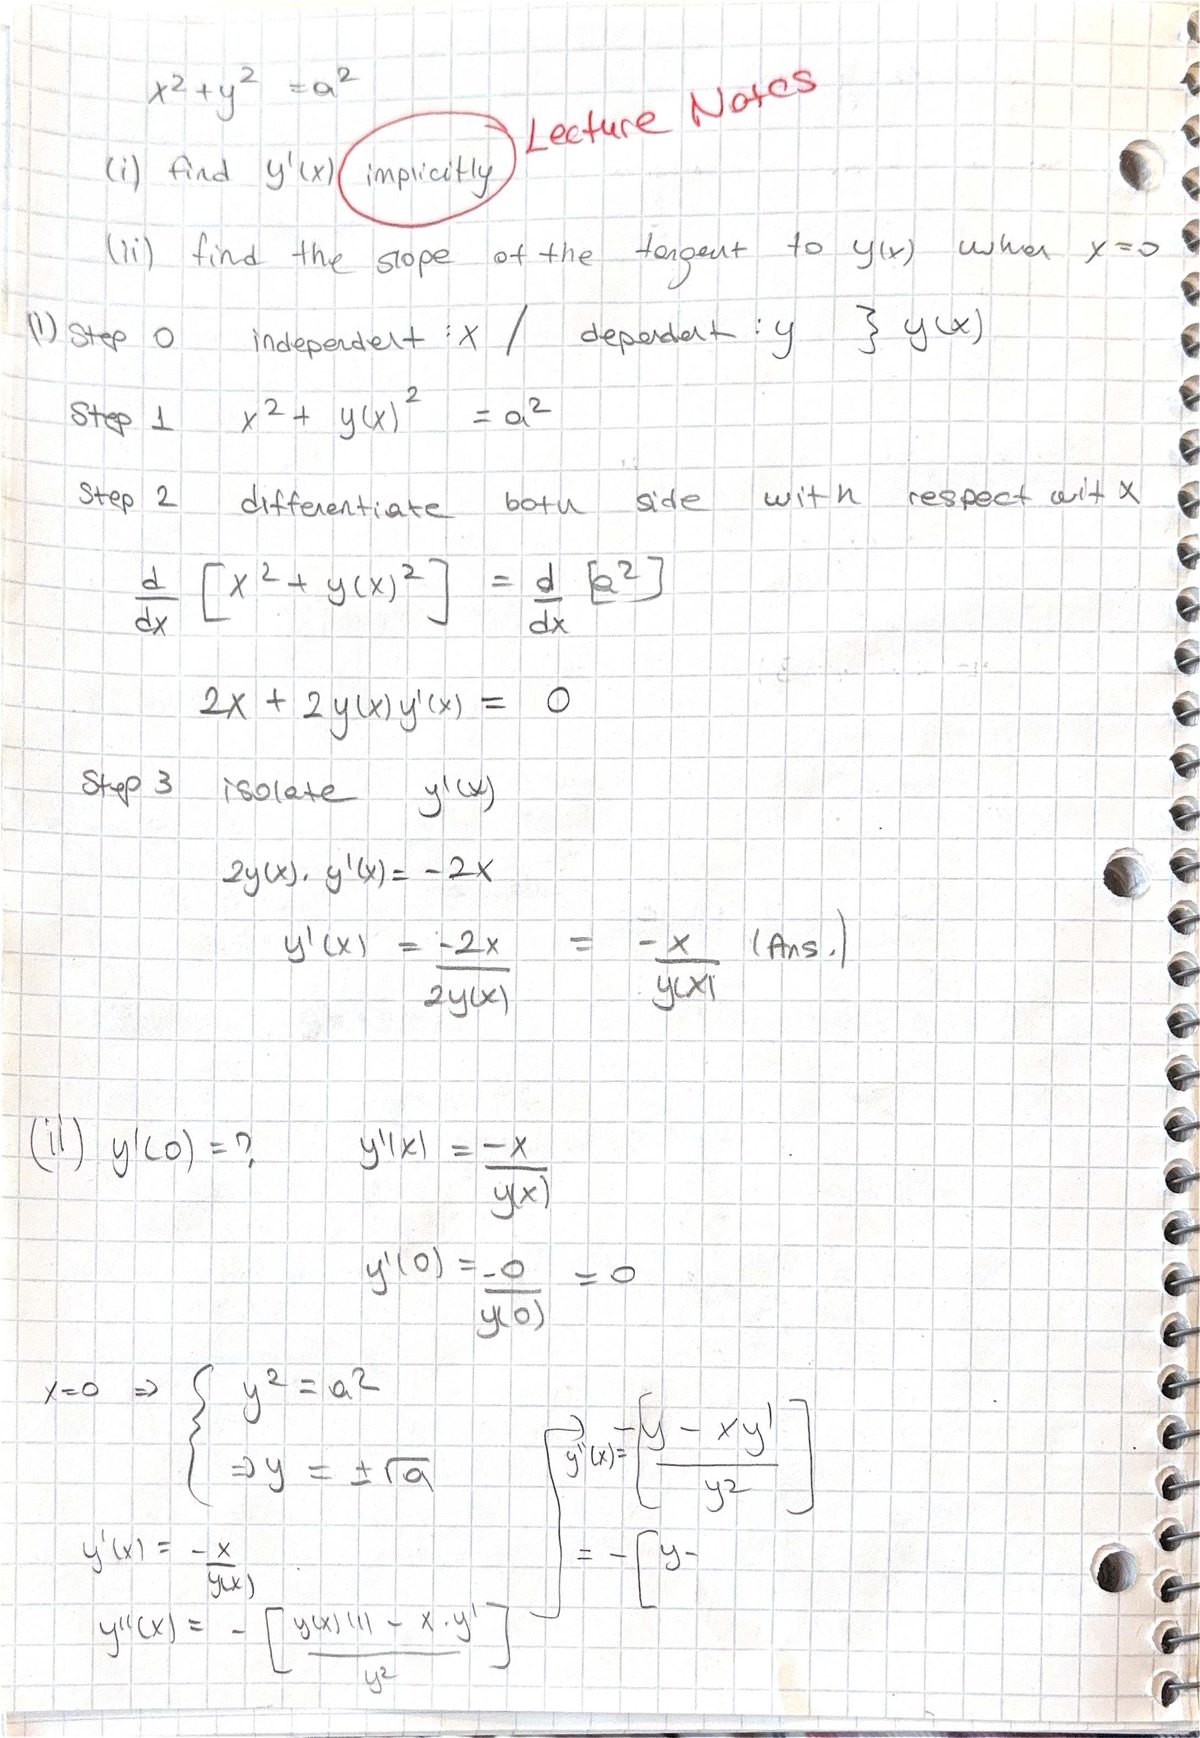 x² + y² = a²
Lecture Notes
(i) find y'(x) implicitly
(ii) find the slope of the tangent to y(x) when x=0
(i) Step 0 independent : x / dependent : y } y(x)
Step 1 x² + y(x)² = a²
Step 2 differentiate both side with respect wit x
d/dx [x² + y(x)²] = d/dx [a²]
2x + 2y(x)y'(x) = 0
Step 3 isolate y'(x)
2y(x). y'(x) = -2x
y'(x) = -2x/2y(x) = -x/y(x) (Ans.)
(ii) y'(0) = ? y'(x) = -x/y(x)
y'(0) = -0/y(0) = 0
x=0 ⇒ { y² = a²
⇒ y = ±√a
y'(x) = -x/y(x)
y''(x) = - [y(x)(1) - x.y' / y²]
y''(x) = - [y - xy' / y²]
= - [y-